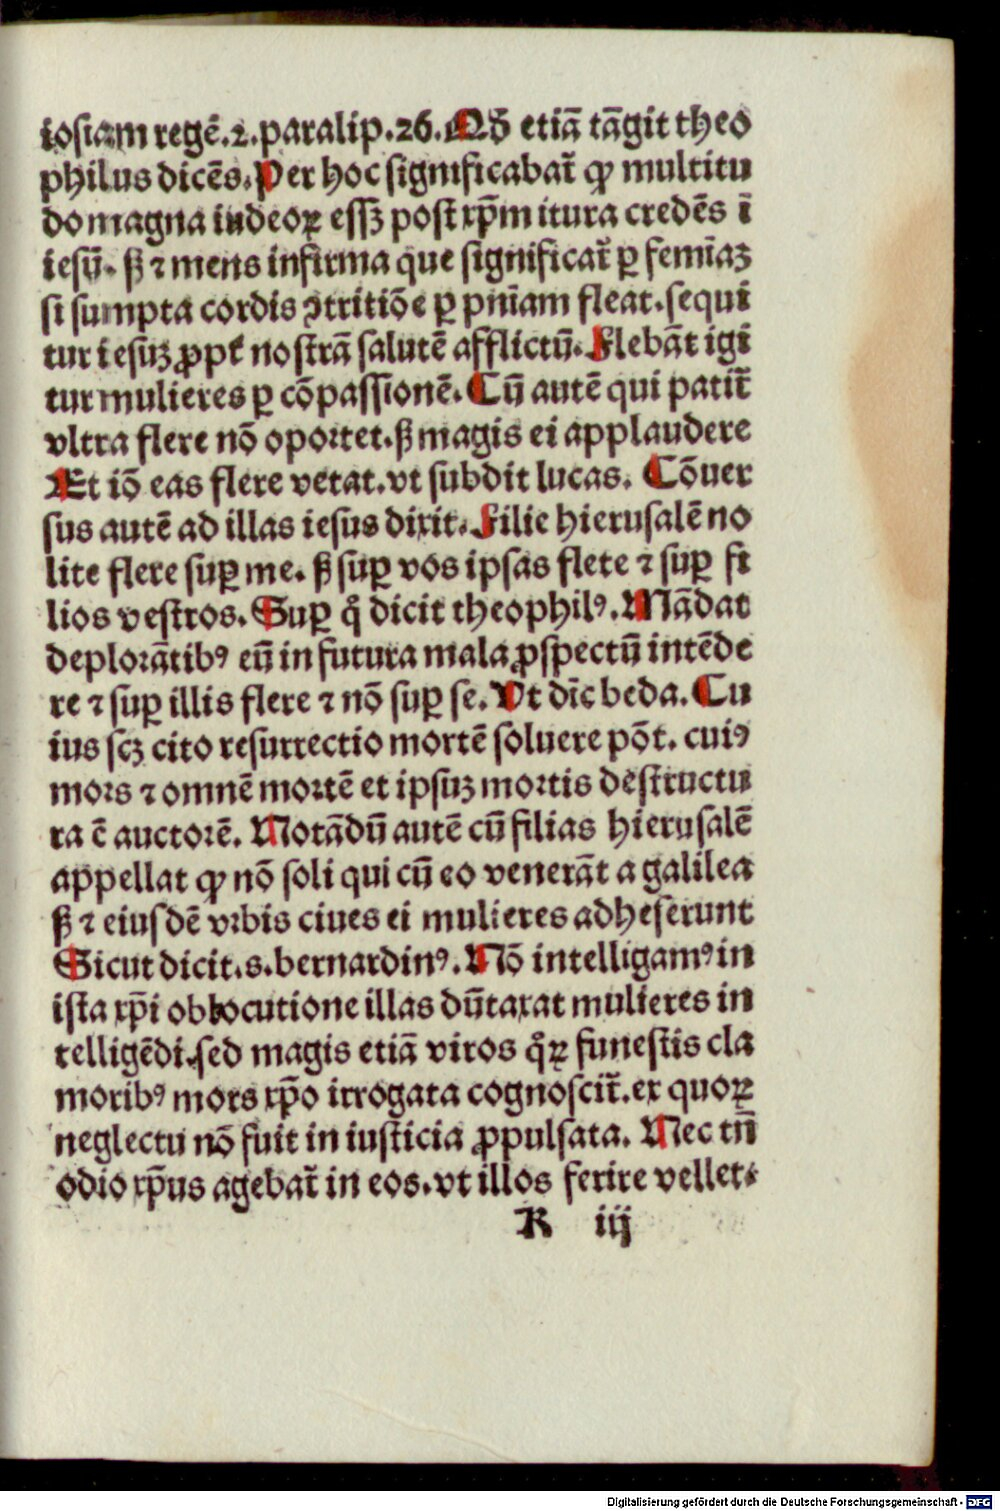 iosiam regē.2.paralip.26.Qđ etiā tāgit theo
philus dicēs.Per hoc significabat̄ ꝙ multitu
do magna iudeoꝝ essꝫ post xp̄m itura credēs ī
iesū. ẜ ⁊ mens infirma que significat̄ ꝑ femīaꝫ
si sumpta cordis ꝯtritiōe ꝑ pn̄iam fleat.sequi
tur iesuꝫ ꝓpt̄ nostrā salutē afflictū.Flebāt igi
tur mulieres ꝑ cōpassionē.Cū autē qui patit̄
vltra flere nō oportet.ẜ magis ei applaudere
Et iō eas flere vetat.vt subdit lucas. Cōuer
sus autē ad illas iesus dixit.Filie hierusalē no
lite flere suꝑ me. ẜ suꝑ vos ipsas flete ⁊ suꝑ fi
lios vestros.Suꝑ qͦ dicit theophilꝰ.Mādat
deplorātibꝰ eū in futura mala ꝓspectū intēde
re ⁊ suꝑ illis flere ⁊ nō suꝑ se.Vt dīc beda.Cu
ius scꝫ cito resurrectio mortē soluere pōt. cuiꝰ
mors ⁊ omnē mortē et ipsuꝫ mortis destructu
ra ē auctorē. Notādū autē cū filias hierusalē
appellat ꝙ nō soli qui cū eo venerāt a galilea
ẜ ⁊ eiusdē vrbis ciues ei mulieres adheserunt
Sicut dicit.s.bernardinꝰ.Nō intelligamꝰ in
ista xp̄i obłocutione illas dūtaxat mulieres in
telligēdi.sed magis etiā viros qͦꝝ funestis cla
moribꝰ mors xp̄o irrogata cognoscit̄.ex quoꝝ
neglectu nō fuit in iusticia ꝓpulsata. Nec tn̄
odio xp̄us agebat̄ in eos.vt illos ferire vellet.
R iij
Digitalisierung gefördert durch die Deutsche Forschungsgemeinschaft - DFG